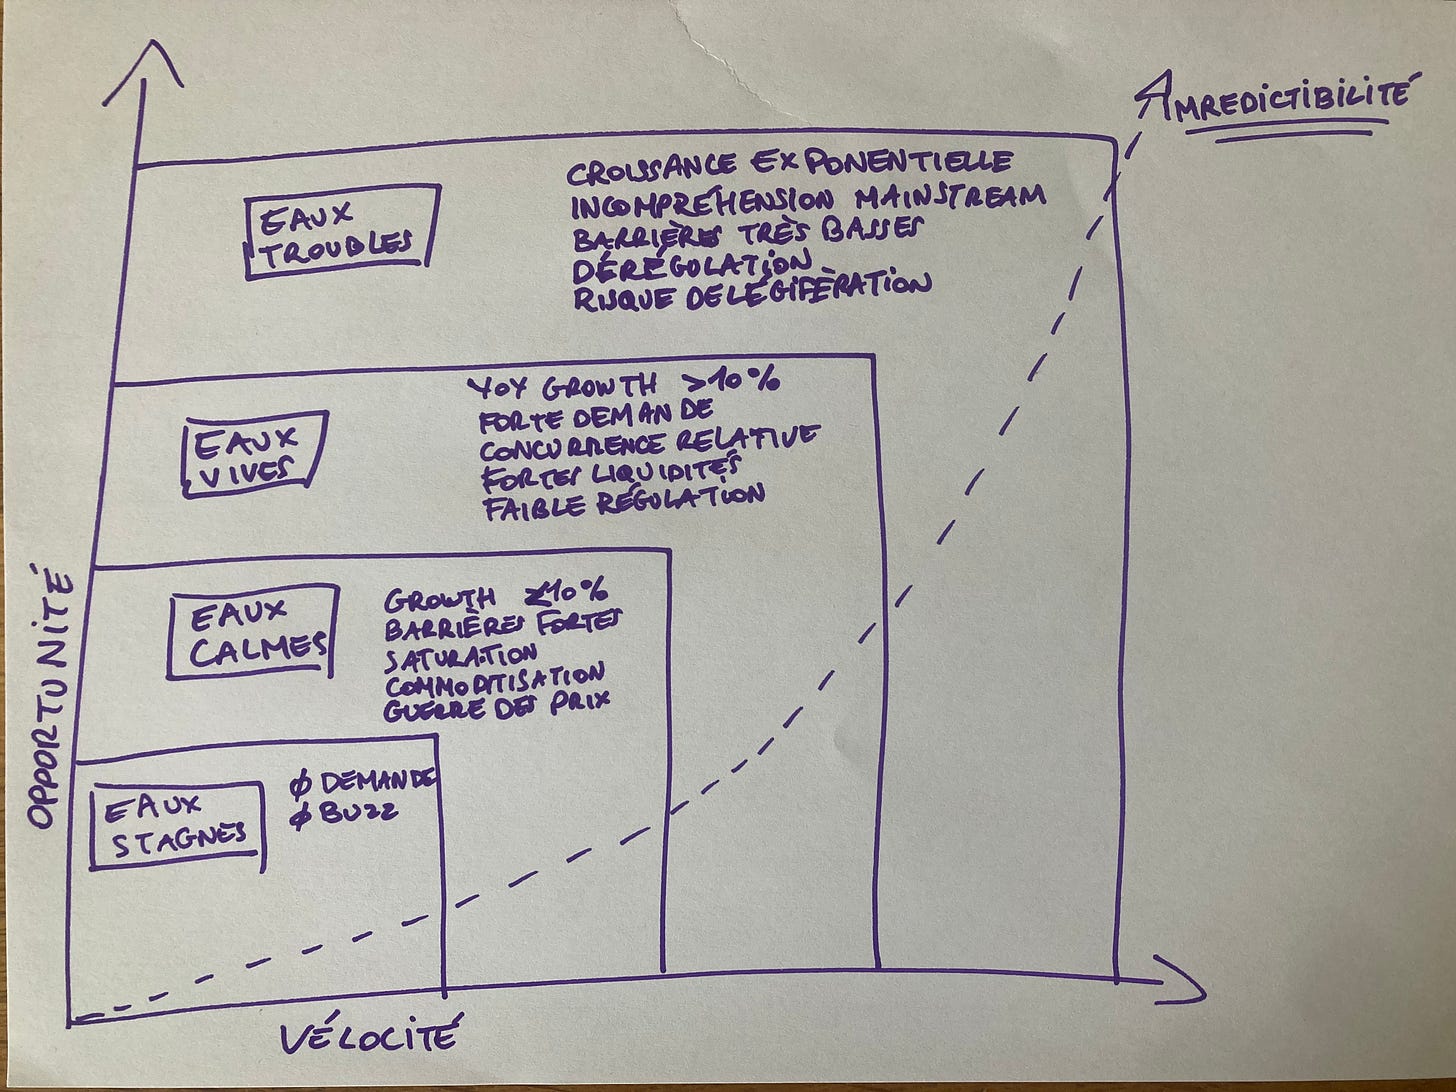 IMREDICTIBILITÉ
EAUX
TROUBLES
CROISSANCE EXPONENTIELLE
INCOMPREHENSION MAINSTREAM
BARRIÈRES TRÈS BASSES
DÉRÉGULATION
RISQUE DE LÉGIFÈRATION
EAUX
VIVES
YOY GROWTH >10%
FORTE DEMANDE
CONCURRENCE RELATIVE
FORTES LIQUIDITÉS
FAIBLE RÉGULATION
EAUX
CALMES
GROWTH ≤10%
BARRIÈRES FORTES
SATURATION
COMMODITISATION
GUERRE DES PRIX
EAUX
STAGNES
Ø DEMANDE
Ø BUZZ
OPPORTUNITÉ
VÉLOCITÉ